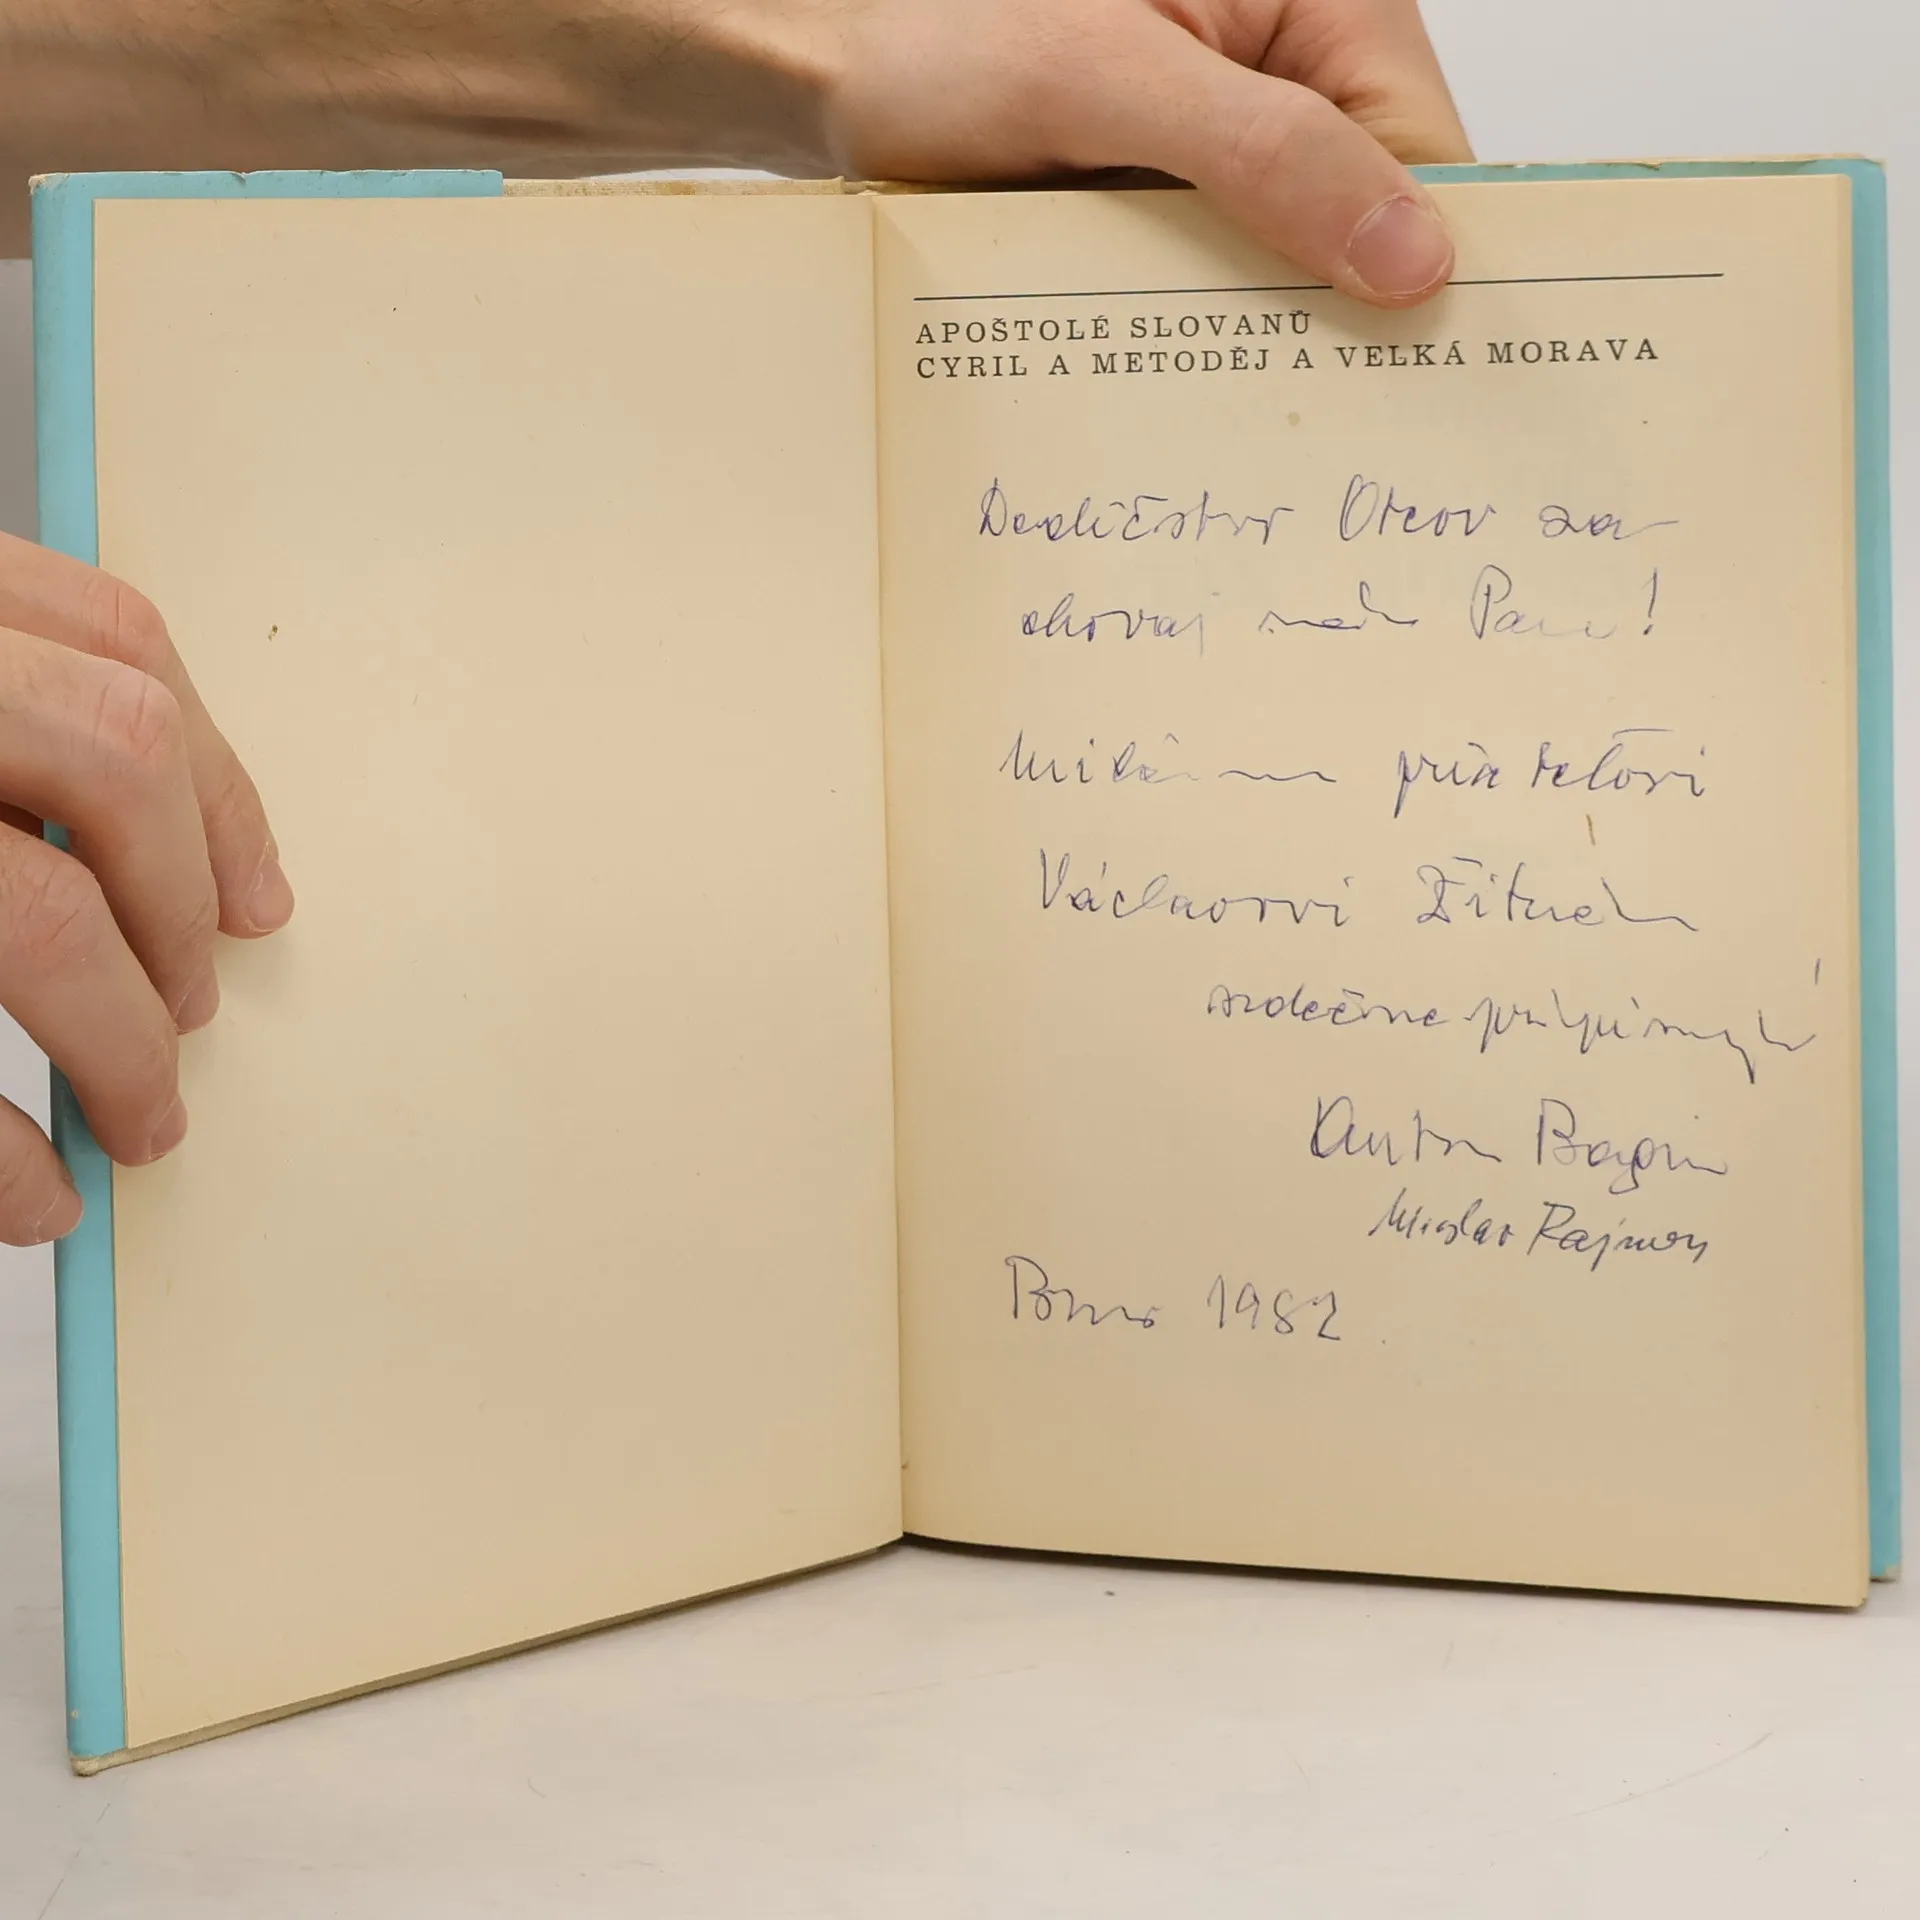 APOŠTOLÉ SLOVANŮ
CYRIL A METODĚJ A VELKÁ MORAVA
Dedičstvo Otcov za-
chovaj nám Pane!
Milému priateľovi
Václavovi
srdečne pripisujú
Anton Bagin
Miroslav
Brno 1982